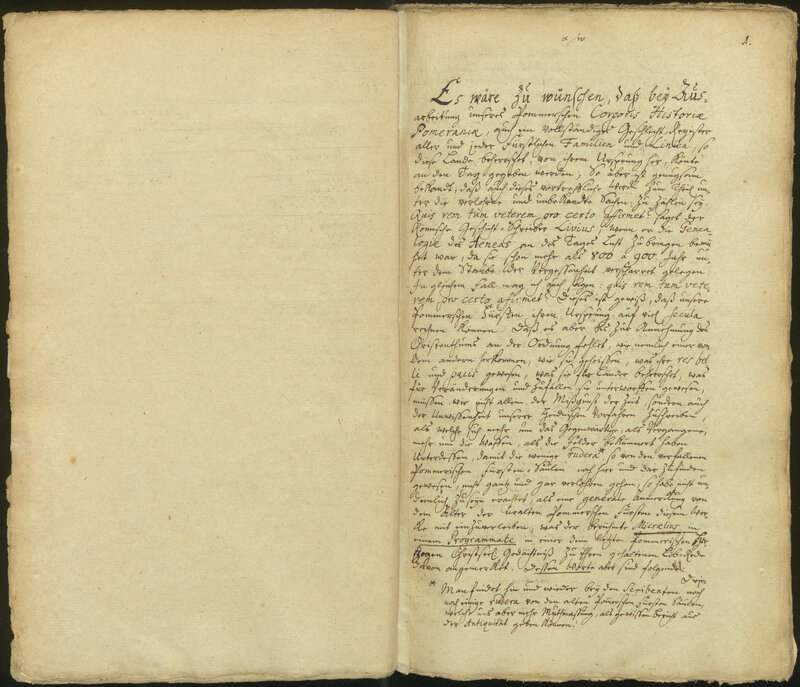 1.
Es wäre zu wünschen, daß bey Aus-
arbeitung unseres Pommerschen Corporis Historiæ
Pomeraniæ, auch ein vollständiges Geschlecht-Register
aller und jeder Fürstlichen Familien und Linien, so
diese Lande beherrschet, von ihrem Ursprung her, könte
an den Tag gegeben werden; So aber ist genugsam
bekandt, daß auch dieses vortreffliche Werck zum Theil un-
ter die verlohrne und unbekandte Sachen zu zählen sey.
Quis rem tam veterem pro certo affirmet? saget der
Römische Geschicht-Schreiber Livius, wenn er die Genea-
logie des Aeneas an des Tages Licht zu bringen bemü-
het war, da sie schon mehr als 800 à 900 Jahr un-
ter dem Staube der Vergessenheit verscharret gelegen
In gleichem Fall mag ich auch sagen: quis rem tam vete-
rem pro certo afirmet? Dieses ist gewiß, daß unsere
Pommerschen Fürsten ihren Ursprung auf viel secula
rechnen können. Daß es aber bis zur Annehmung des
Christenthums an der Ordnung fehlet, wie nemlich einer von
dem andern herkommen, wie sie geheissen, was ihre res bel-
li und pacis gewesen, was sie für Länder beherrschet, was
für Veränderungen und Zufällen sie unterworffen gewesen,
müssen wir nicht allein der Mißgunst der Zeit, sondern auch
der Unwissenheit unserer Heidnischen Vorfahren zuschreiben,
als welche sich mehr um das Gegenwärtige, als Vergangene,
mehr um die Waffen, als die Felder bekümmert haben
Unterdessen, damit die wenige rudera* so von den verfallenen
Pommerischen Fürsten-Säulen noch hier und dar zu finden
gewesen, nicht gantz und gar verlohren gehen, so habe nicht un-
dienlich zu seyn erachtet, als eine generale Anmerckung von
dem Alter der uralten Pommerschen Fürsten diesem Wer-
cke mit einzuverleiben, was der berühmte Micrælius in
einem Programmate in einer dem letzten Pommerischen Her-
tzogen Christseel. Gedächtniß zu Ehren gehaltenen
davon angemercket. Dessen Worte aber sind folgende:
* Man findet hin und wieder bey den Scribenten noch
noch einige rudera von den alten Pommerschen Fürsten Säulen,
welche uns aber mehr Muthmassung, als gewissen Bericht aus
der Antiquität geben können.